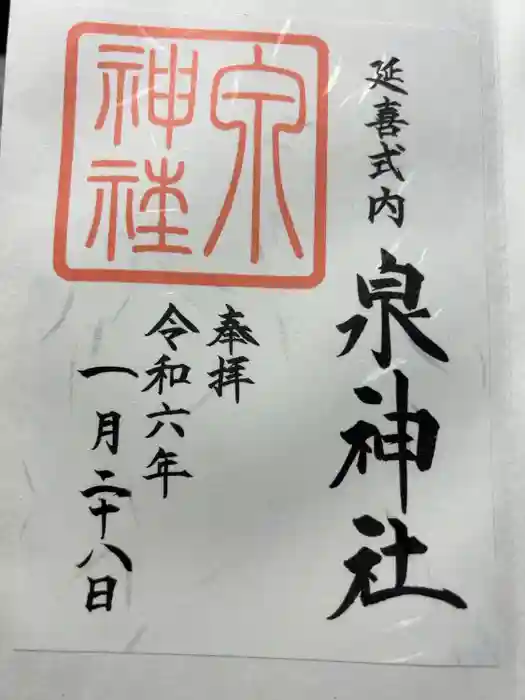 延喜式内 泉神社
奉拝
令和六年
一月二十八日
泉
神社